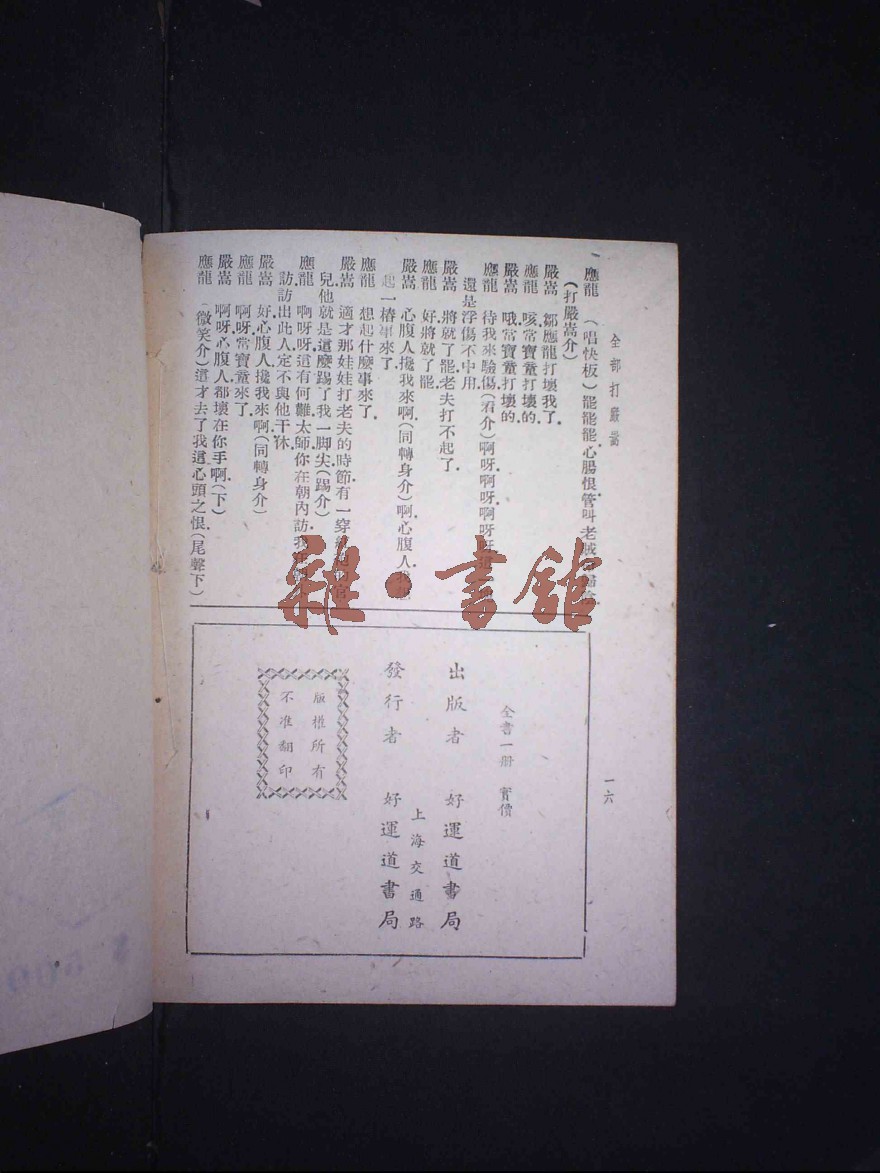 全部打嚴嵩
應龍　（唱快板）罷罷罷心腸恨管叫老賊
（打嚴嵩介）
嚴嵩　鄒應龍打壞我了
應龍　咳常寶童打壞的
嚴嵩　哦常寶童打壞的
應龍　待我來驗傷（看介）啊呀啊呀啊呀呀這
還是浮傷不中用
嚴嵩　將就了罷老夫打不起了
應龍　好將就了罷
嚴嵩　心腹人攙我來啊（同轉身介）啊心腹人我
起一樁事來了
應龍　想起什麼事來了
嚴嵩　適才那娃娃打老夫的時節有一穿
兒他就是這麼踢了我一脚尖（踢介）
應龍　啊呀呀這有何難太師你在朝內訪
訪訪出此人定不與他干休
嚴嵩　好心腹人攙我來啊（同轉身介）
應龍　啊呀常寶童來了
嚴嵩　啊呀心腹人都壞在你手啊（下）
應龍　（微笑介）這才去了我這心頭之恨（尾聲下）
一六
全書一册　實價
出版者　好運道書局
上海交通路
發行者　好運道書局
版權所有
不准翻印
雜·書舘